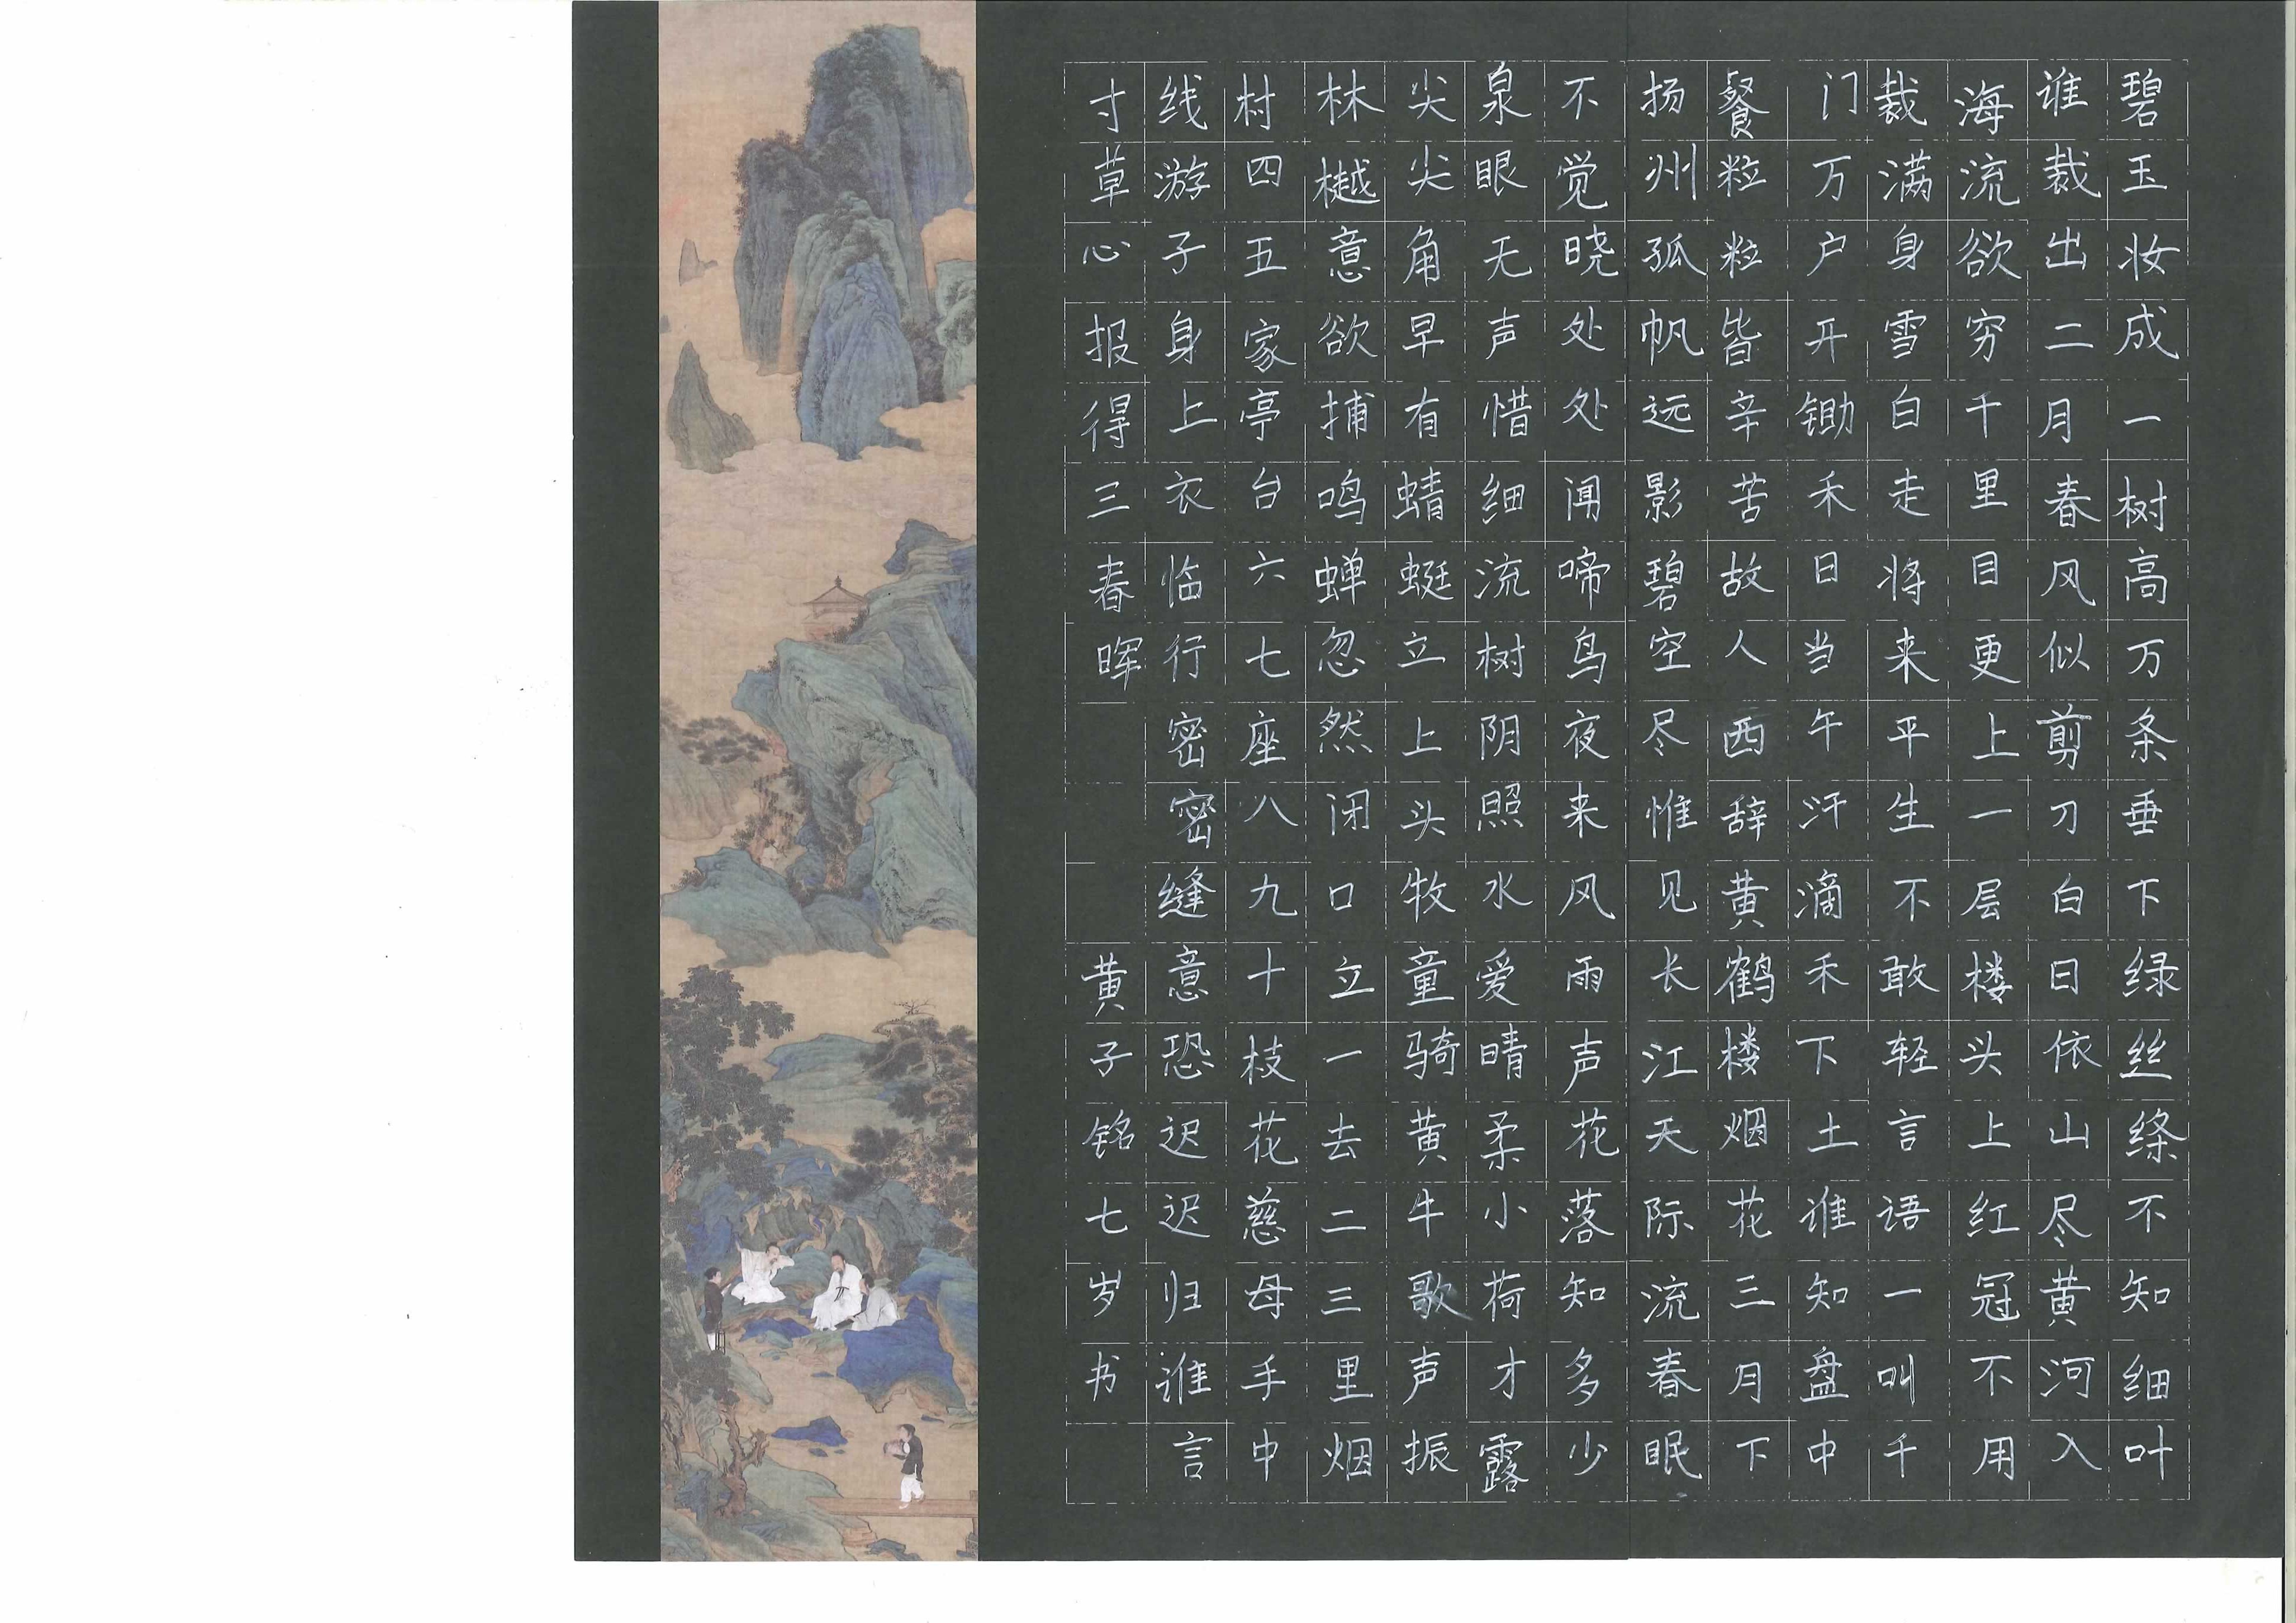 碧玉妆成一树高万条垂下绿丝绦不知细叶
谁裁出二月春风似剪刀白日依山尽黄河入
海流欲穷千里目更上一层楼头上红冠不用
裁满身雪白走将来平生不敢轻言语一叫千
门万户开锄禾日当午汗滴禾下土谁知盘中
餐粒粒皆辛苦故人西辞黄鹤楼烟花三月下
扬州孤帆远影碧空尽惟见长江天际流春眠
不觉晓处处闻啼鸟夜来风雨声花落知多少
泉眼无声惜细流树阴照水爱晴柔小荷才露
尖尖角早有蜻蜓立上头牧童骑黄牛歌声振
林樾意欲捕鸣蝉忽然闭口立一去二三里烟
村四五家亭台六七座八九十枝花慈母手中
线游子身上衣临行密密缝意恐迟迟归谁言
寸草心报得三春晖 黄子铭七岁书